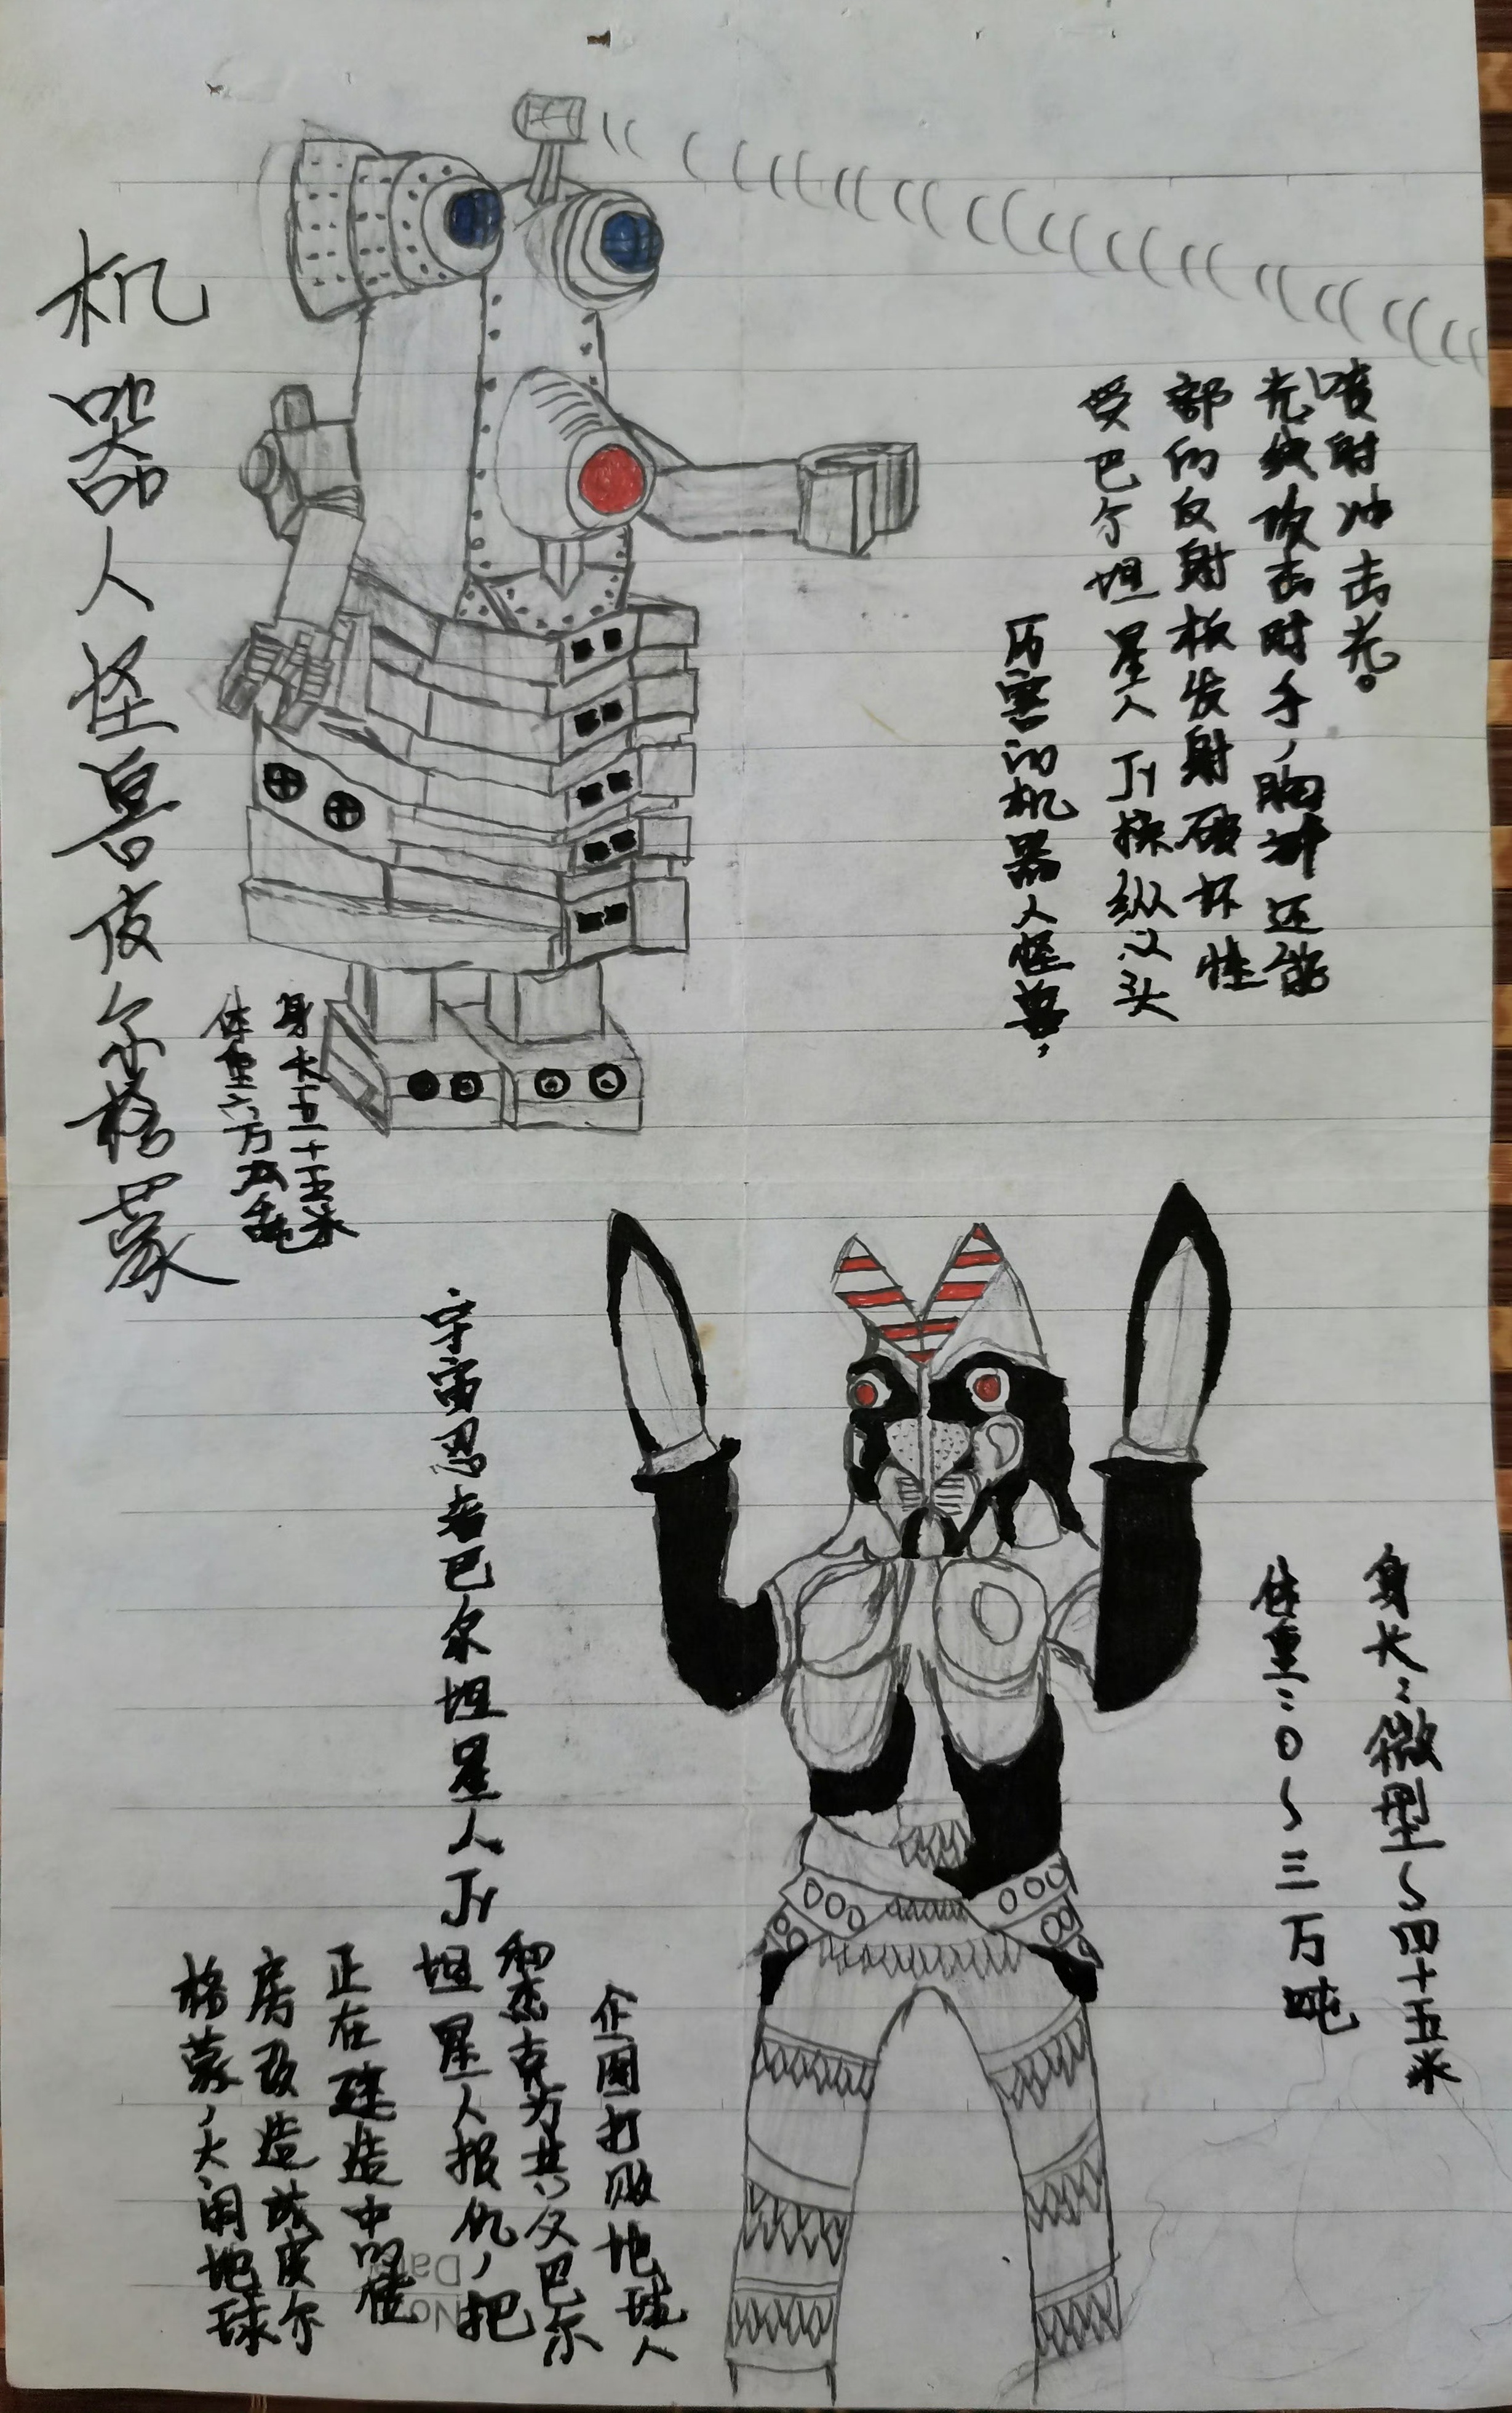 机器人怪兽皮尔格蒙
身长五十五米
体重六万五千吨
厉害的机器人怪兽,
受巴尔坦星人Jr操纵以头
部的反射板发射破坏性
光线攻击对手,胸部还能
喷射冲击光。
宇宙忍者巴尔坦星人Jr
身长:微型~四十五米
体重:0~三万吨
企图打败地球人
和杰克为其父巴尔
坦星人报仇,把
正在建造中的楼
房改造成皮尔
格蒙,大闹地球
No
Da